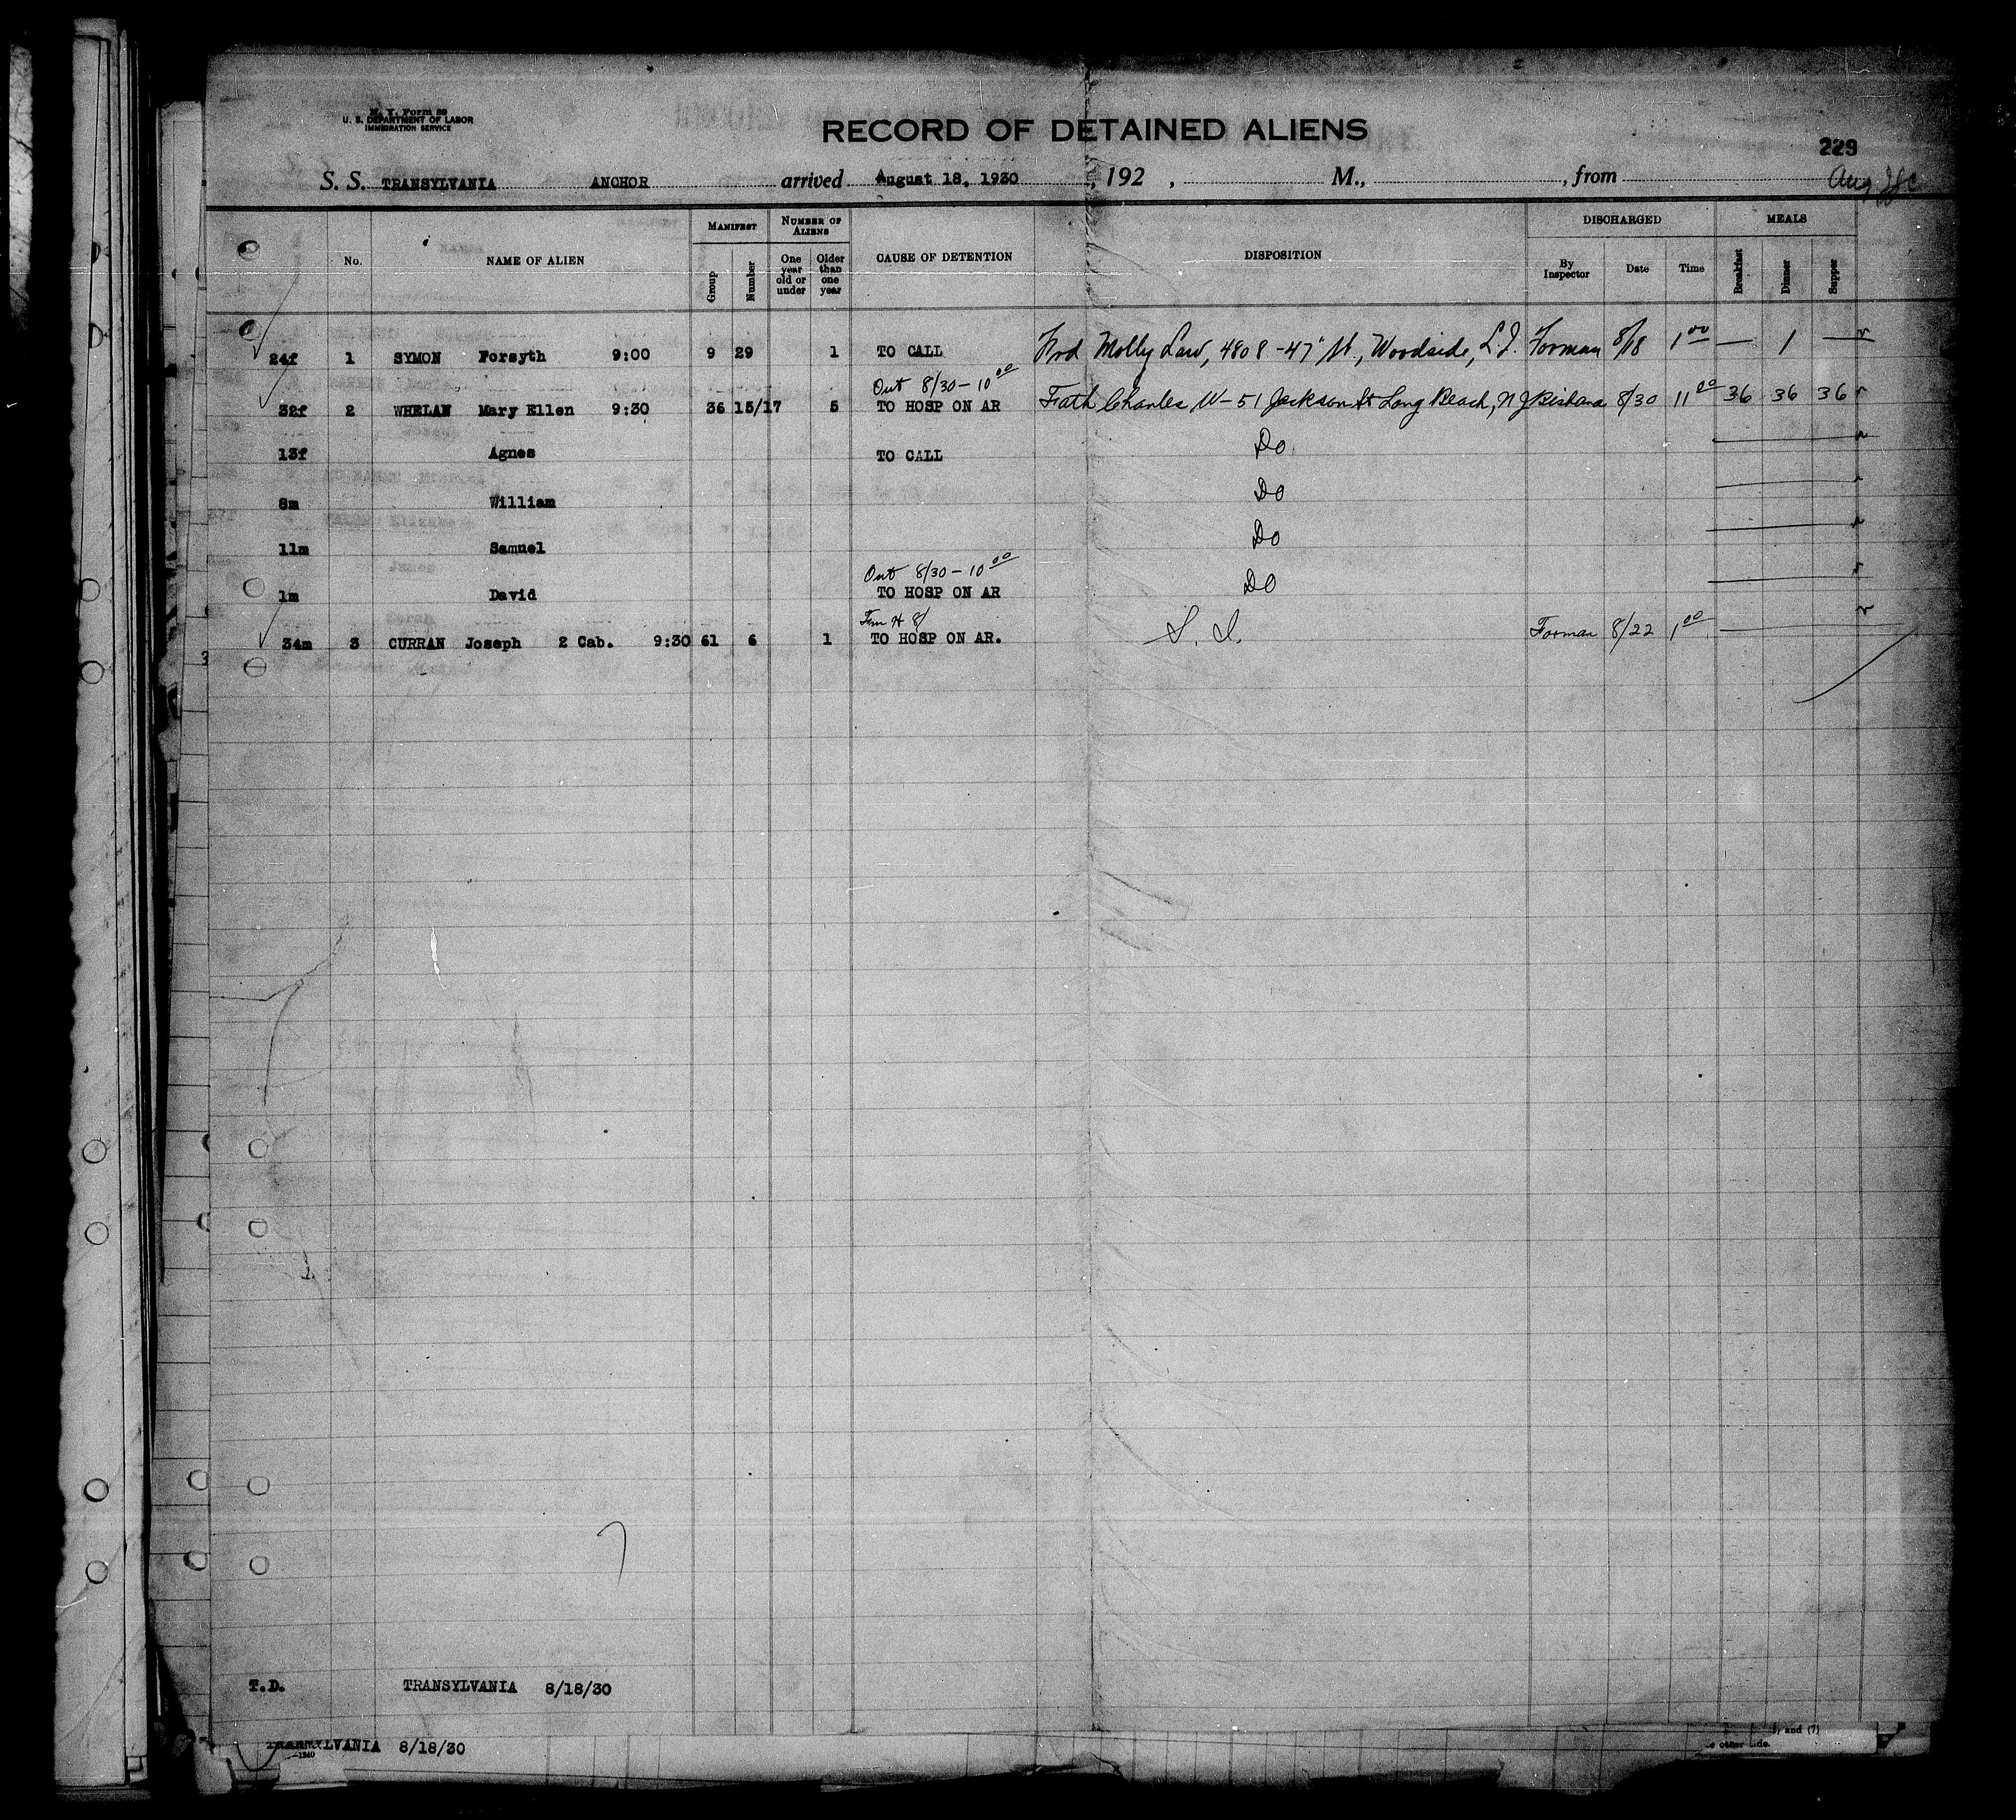 N. Y. Form 86
U. S. DEPARTMENT OF LABOR
IMMIGRATION SERVICE
RECORD OF DETAINED ALIENS
229
S. S. TRANSYLVANIA ANCHOR arrived August 18, 1930, 192 , M., , from
Aug
No. NAME OF ALIEN MANIFEST Group Number NUMBER OF ALIENS One year old or under Older than one year CAUSE OF DETENTION DISPOSITION DISCHARGED By Inspector Date Time MEALS Breakfast Dinner Supper
24f 1 SYMON Forsyth 9:00 9 29 1 TO CALL Frd Molly Law, 4808-47" St., Woodside, L.I. Forman 8/18 1 00 — 1 —
Out 8/30-10 00
32f 2 WHELAN Mary Ellen 9:30 36 15/17 5 TO HOSP ON AR Fath Charles W-51 Jackson St Long Beach, N J 8/30 11 00 36 36 36
13f Agnes TO CALL Do
8m William Do
11m Samuel Do
Out 8/30-10 00
1m David TO HOSP ON AR Do
34m 3 CURRAN Joseph 2 Cab. 9:30 61 6 1 TO HOSP ON AR. S. I. Forman 8/22 1 00
T.D. TRANSYLVANIA 8/18/30
TRANSYLVANIA 8/18/30
, and (7)
other side.